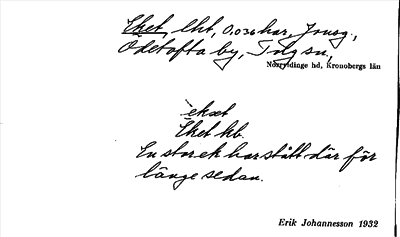 Eket, lht, 0.036 har, Jnusg.,
Odetofta by, Tolg sn,
Norrvidinge hd, Kronobergs län
ekət
Eket hb.
En stor ek har stått där för
länge sedan.
Erik Johannesson 1932